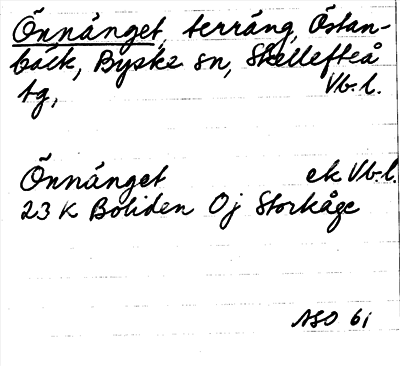 Önnänget, terräng, Östan-
bäck, Byske sn, Skellefteå
tg, Vb. l.
Önnänget ek Vb. l.
23 K Boliden Oj Storkåge
ASO 61